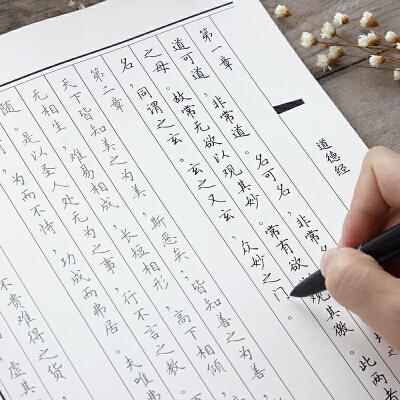 道德经
第一章
道可道，非常道。名可名，非常名
之母。故常无欲以观其妙。常有欲以观其徼。此两者
名，同谓之玄。玄之又玄，众妙之门。
第二章
天下皆知美之为美，斯恶矣，皆知善之为善
元相生，难易相成，长短相形，高下相倾
是以圣人处元为之事，行不言之教
为而不恃，功成而弗居。夫唯弗
不贵难得之货
虚其